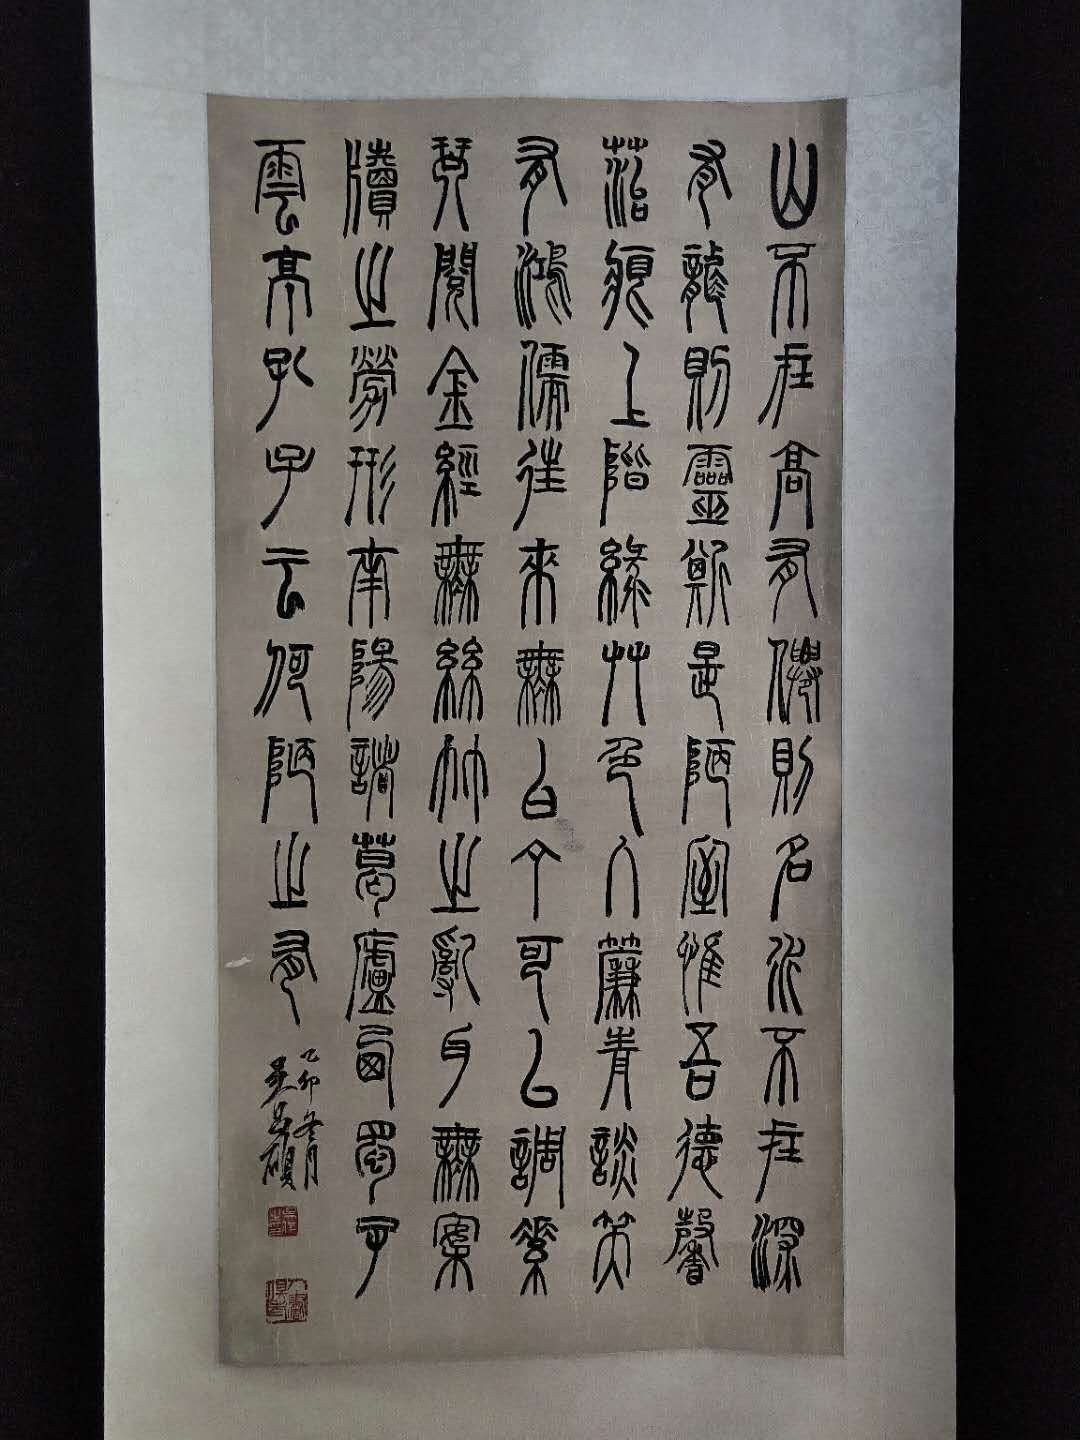 山不在高有僊則名水不在深
有龍則靈斯是陋室惟吾德馨
菭痕上階綠艸色入簾青談笑
有鴻儒往來無白丁可以調素
琴閱金經無絲竹之亂耳無案
牘之勞形南陽諸葛廬西蜀子
雲亭孔子云何陋之有
乙卯冬月
吳昌碩